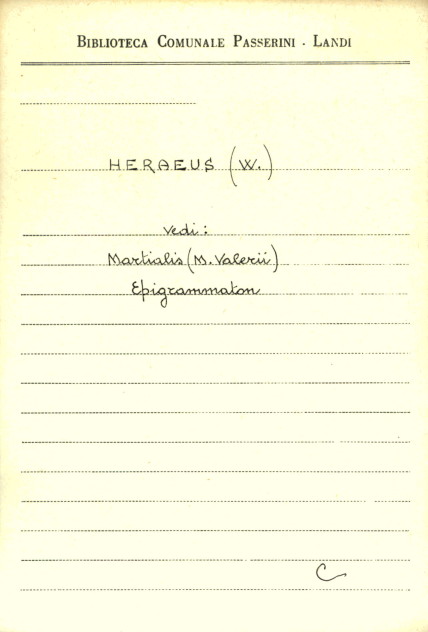 BIBLIOTECA COMUNALE PASSERINI - LANDI
HERAEUS (W.)
Vedi:
Martialis (M. Valerii)
Epigrammaton
C